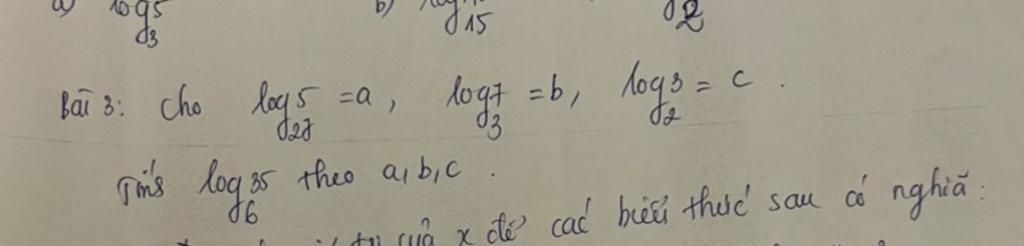 a) log₃5 b) log₁₅
Bài 3: Cho log₂₇5 = a, log₃7 = b, log₂3 = c.
Tính log₆35 theo a, b, c.
của x để các biểu thức sau có nghĩa: